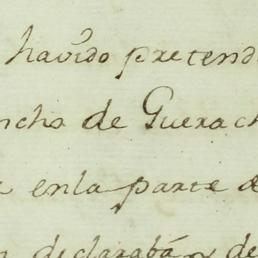 havido pretend
ncho de Guerach
enla parte d
declarabán de